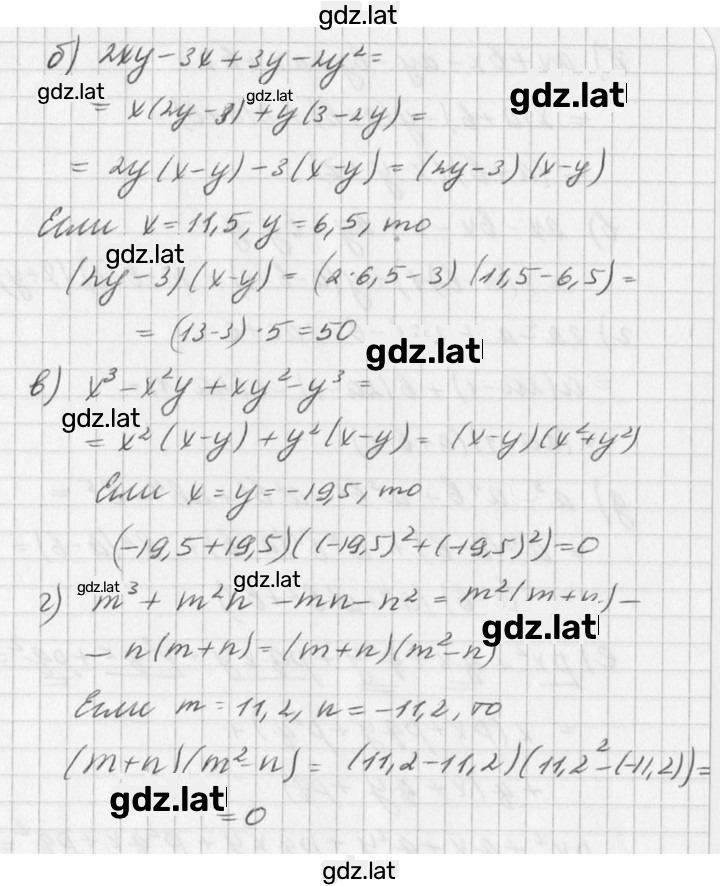 gdz.lat
б) 2xy-3x+3y-2y²=
gdz.lat gdz.lat gdz.lat
= x(2y-3)+y(3-2y)=
= 2y(x-y)-3(x-y)=(2y-3)(x-y)
Если x=11,5, y=6,5, то
gdz.lat
(2y-3)(x-y)=(2·6,5-3)(11,5-6,5)=
= (13-3)·5=50
gdz.lat
в) x³-x²y+xy²-y³=
gdz.lat
= x²(x-y)+y²(x-y)= (x-y)(x²+y²)
Если x=y=-19,5, то
(-19,5+19,5)((-19,5)²+(-19,5)²)=0
gdz.lat gdz.lat
г) m³+m²n-mn-n²=m²(m+n)-
gdz.lat
-n(m+n)=(m+n)(m²-n)
Если m=11,2, n=-11,2, то
(m+n)(m²-n)= (11,2-11,2)(11,2²-(-11,2))=
gdz.lat
=0
gdz.lat